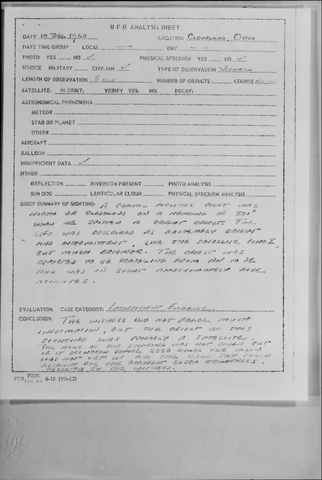 UFO ANALYSIS SHEET
DATE 10 DEC 1960 LOCATION CLEVELAND, OHIO
DATE TIME GROUP LOCAL GMT
PHOTO YES NO ✓ PHYSICAL SPECIMEN YES NO ✓
SOURCE MILITARY CIVILIAN ✓ TYPE OF OBSERVATION
LENGTH OF OBSERVATION 5 NUMBER OF OBJECTS COURSE
SATELLITE: IN ORBIT: VERIFY YES: NO: DECAY:
ASTRONOMICAL PHENOMENA
METEOR
STAR OR PLANET
OTHER
AIRCRAFT
BALLOON
INSUFFICIENT DATA ✓
OTHER
REFLECTION INVERSION PRESENT PHOTO ANALYSIS
SUN DOG LENTICULAR CLOUD PHYSICAL SPECIMEN ANALYSIS
BRIEF SUMMARY OF SIGHTING: A CAPITAL AIRLINES PILOT WAS
NORTH OF CLEVELAND ON A HEADING OF 330°
WHEN HE SPOTTED A BRIGHT OBJECT. THE
UFO WAS DESCRIBED AS EXTREMELY BRIGHT
AND INTERMITTENT, LIKE THE SATELLITE ECHO I,
BUT MUCH BRIGHTER. THE OBJECT WAS
REPORTED TO BE TRAVELING FROM NW TO SE
AND WAS IN SIGHT APPROXIMATELY FIVE
MINUTES.
EVALUATION: CASE CATEGORY: INSUFFICIENT EVIDENCE
CONCLUSION: THE WITNESS DID NOT FORWARD MUCH
INFORMATION, BUT THE OBJECT OF THIS
SIGHTING WAS PROBABLY A SATELLITE.
THE TIME OF THE SIGHTING WAS NOT GIVEN BUT
IF IT OCCURRED BEFORE HOURS THE MOON
WAS NOT YET UP AND THIS COULD
ACCOUNT FOR THE APPARENT EXTRA BRIGHTNESS
REPORTED BY THE WITNESS.
FORM